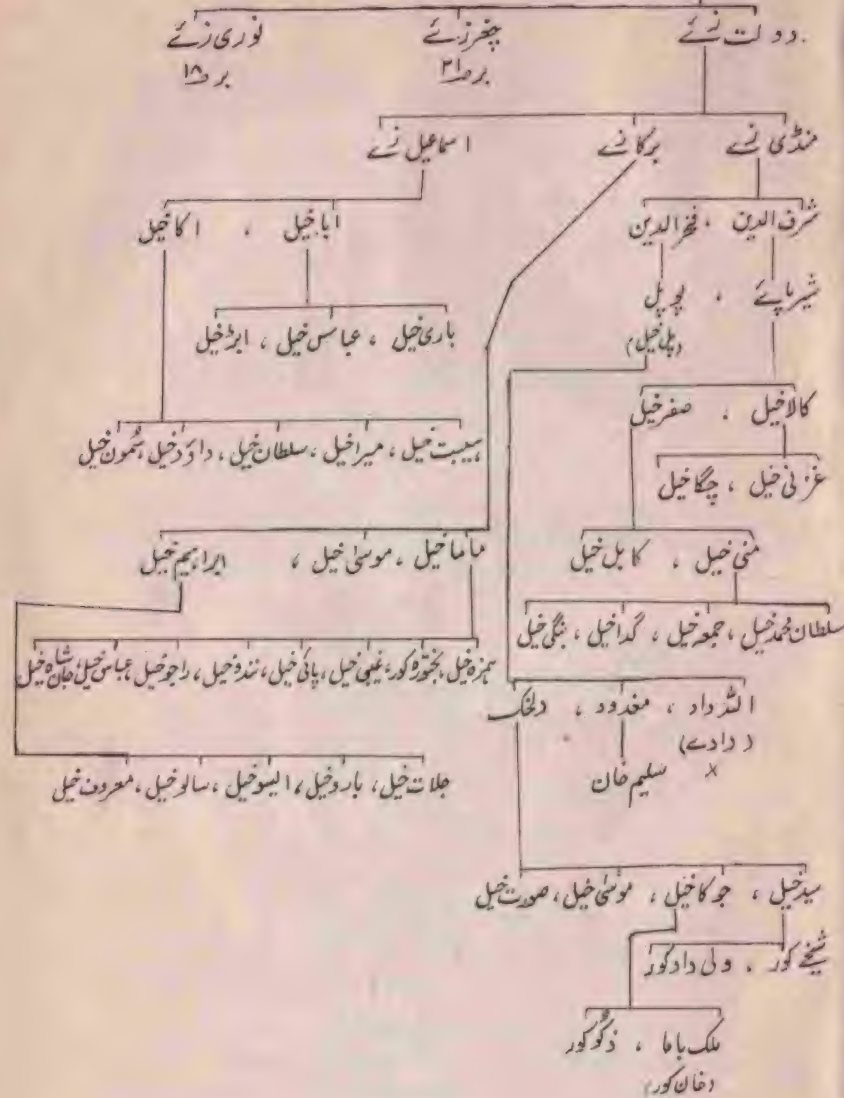 دولت زئے چغرزئے نوری زئے
بر صـ۳۱ بر صـ۱۸
منڈی زے برکا زے اسماعیل زے
شرف الدین ، فخرالدین اباخیل ، اکاخیل
شیرپائے ، پوپل
(پل خیل)
باری خیل ، عباس خیل ، ابڑخیل
کالاخیل ، صفرخیل
ہیبت خیل ، میراخیل ، سلطان خیل ، داؤدخیل ، شمون خیل
غزنی خیل ، چگاخیل
ماماخیل ، موسیٰ خیل ، ابراہیم خیل
منی خیل ، کابل خیل
سلطان محمدخیل ، جمعہ خیل ، گداخیل ، بنگی خیل
ہمزہ خیل ، بختوڑہ کور ، غیبی خیل ، پائی خیل ، نندوخیل ، راجوخیل ، عباس خیل ، جان شاہ خیل
اللہ داد ، مغدود ، دلخک
(دادے)
x سلیم خان
جلات خیل ، باروخیل ، ایسوخیل ، سالوخیل ، معروف خیل
سیدخیل ، جوکاخیل ، موسیٰ خیل ، صورت خیل
شیخے کور ، ولی دادکور
ملک بابا ، ذکوکور
(خان کور)